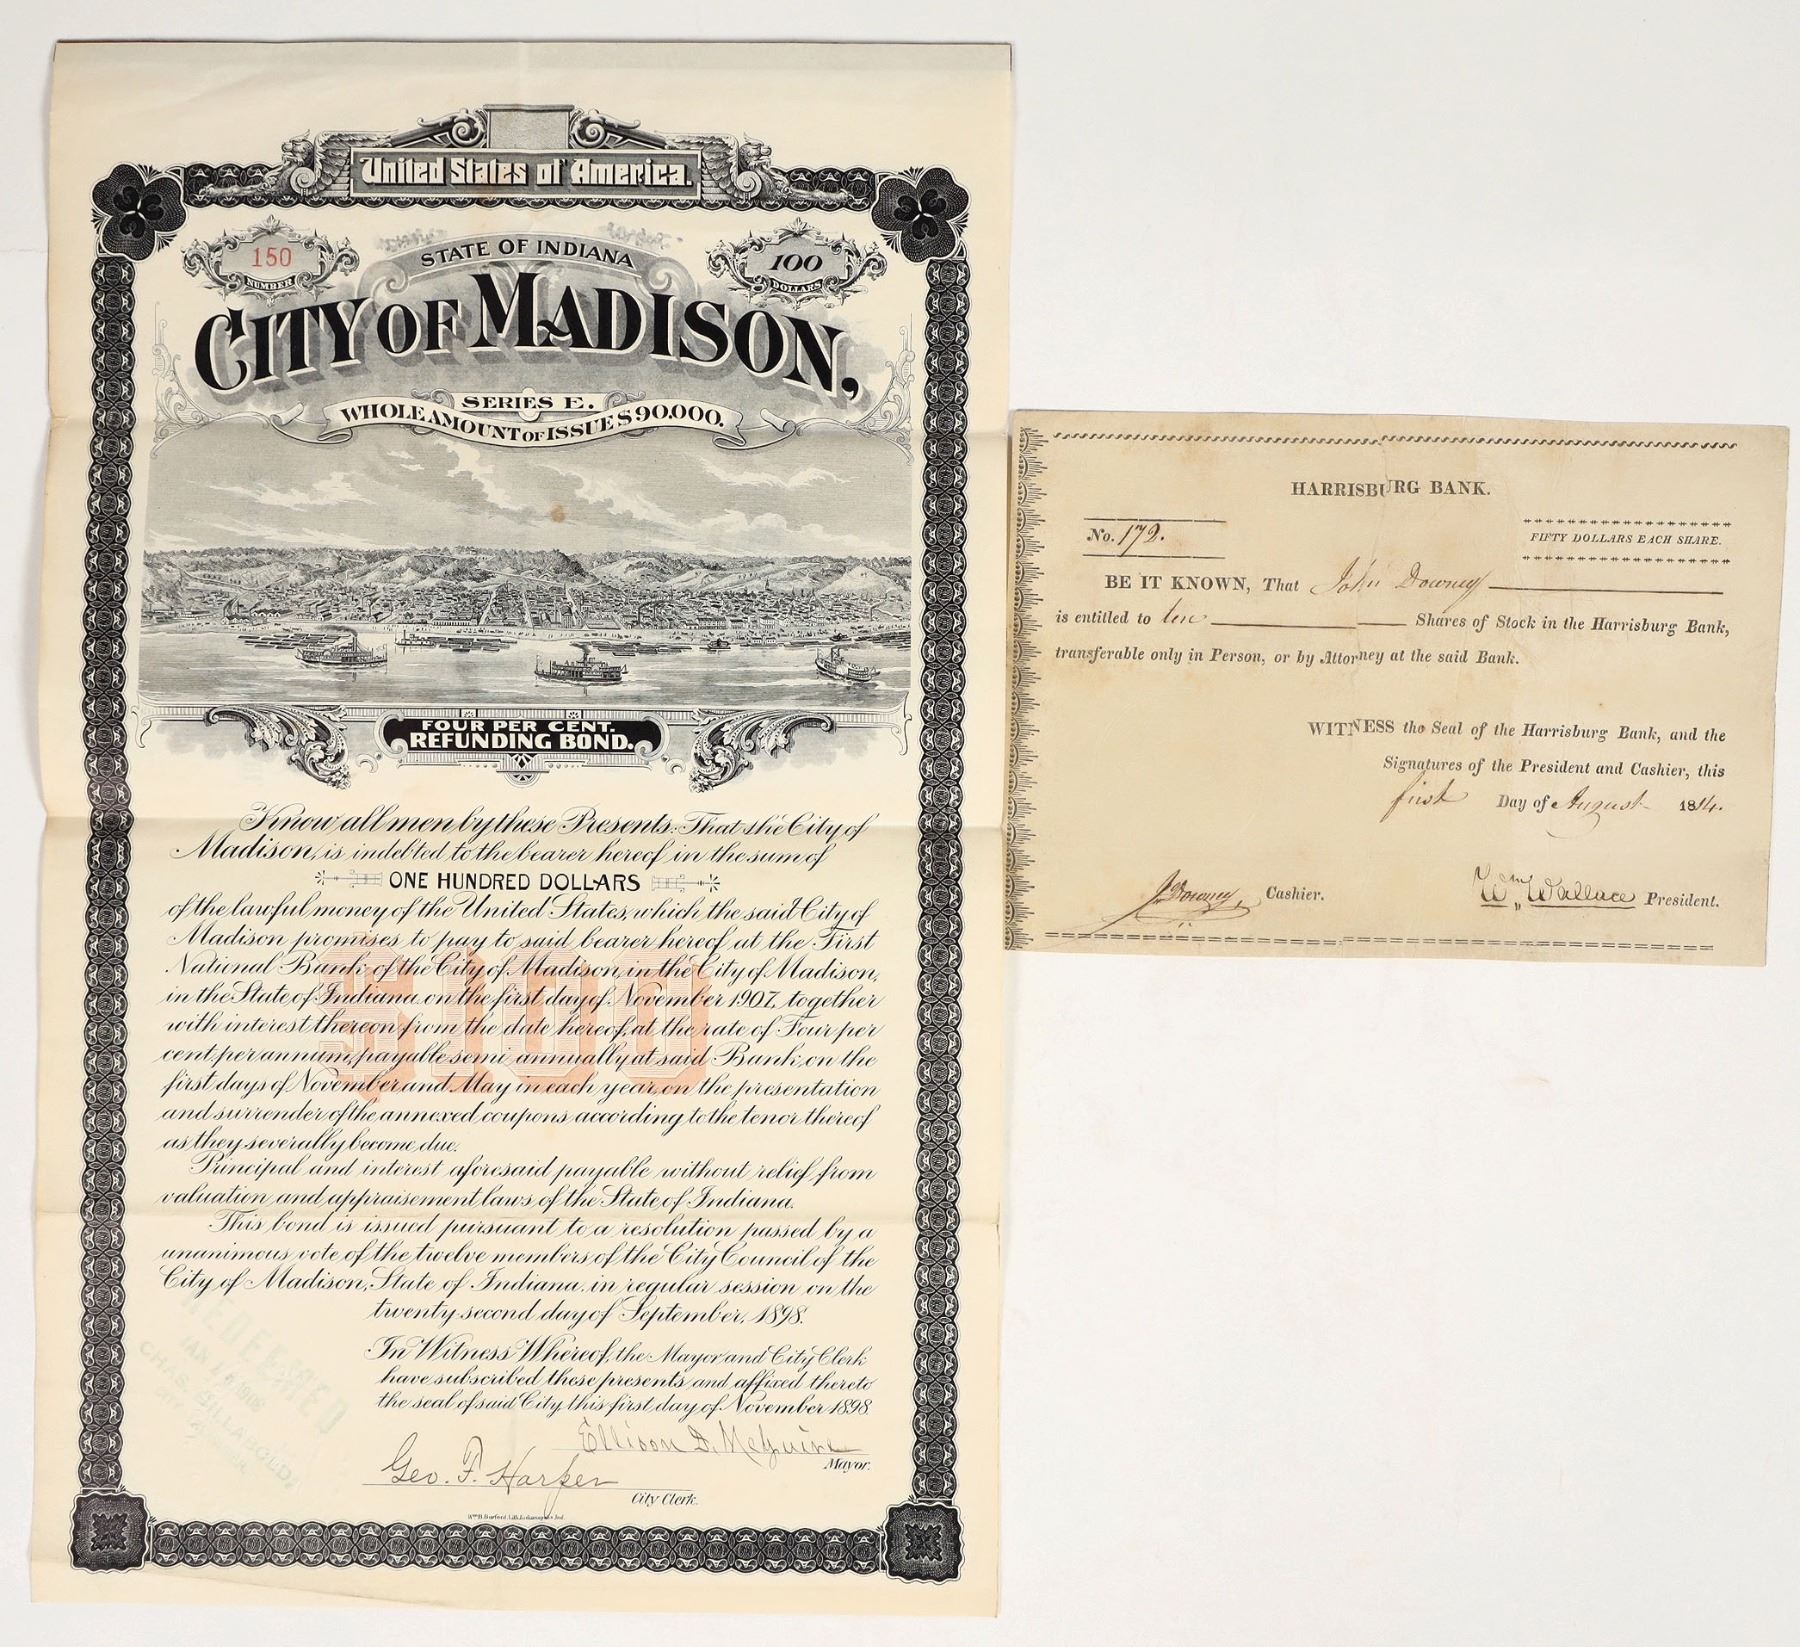 United States of America.
150
NUMBER
STATE OF INDIANA
100
DOLLARS
CITY OF MADISON,
SERIES E.
WHOLE AMOUNT OF ISSUE $90.000.
FOUR PER CENT.
REFUNDING BOND.
Know all men by these Presents: That the City of
Madison, is indebted to the bearer hereof in the sum of
ONE HUNDRED DOLLARS
of the lawful money of the United States, which the said City of
Madison promises to pay to said bearer hereof at the First
National Bank, of the City of Madison, in the City of Madison,
in the State of Indiana on the first day of November 1907, together
with interest thereon from the date hereof, at the rate of Four per
cent, per annum, payable semi annually at said Bank, on the
first days of November and May in each year, on the presentation
and surrender of the annexed coupons according to the tenor thereof
as they severally become due.
$100
Principal and interest aforesaid payable without relief from
valuation and appraisement laws of the State of Indiana.
This bond is issued pursuant to a resolution passed by a
unanimous vote of the twelve members of the City Council of the
City of Madison, State of Indiana in regular session on the
twenty second day of September, 1898.
In Witness Whereof, the Mayor and City Clerk
have subscribed these presents and affixed thereto
the seal of said City this first day of November 1898
Ellison D. McGuire
Mayor.
Geo. F. Harper
City Clerk.
REDEEMED
JAN 1908
Wm. B. Burford, Lith. Indianapolis Ind.
HARRISBURG BANK.
No. 172.
FIFTY DOLLARS EACH SHARE.
BE IT KNOWN, That John Downey
is entitled to ten Shares of Stock in the Harrisburg Bank,
transferable only in Person, or by Attorney at the said Bank.
WITNESS the Seal of the Harrisburg Bank, and the
Signatures of the President and Cashier, this
first Day of August 1814.
J. Downey, Cashier.
Wm. Wallace President.